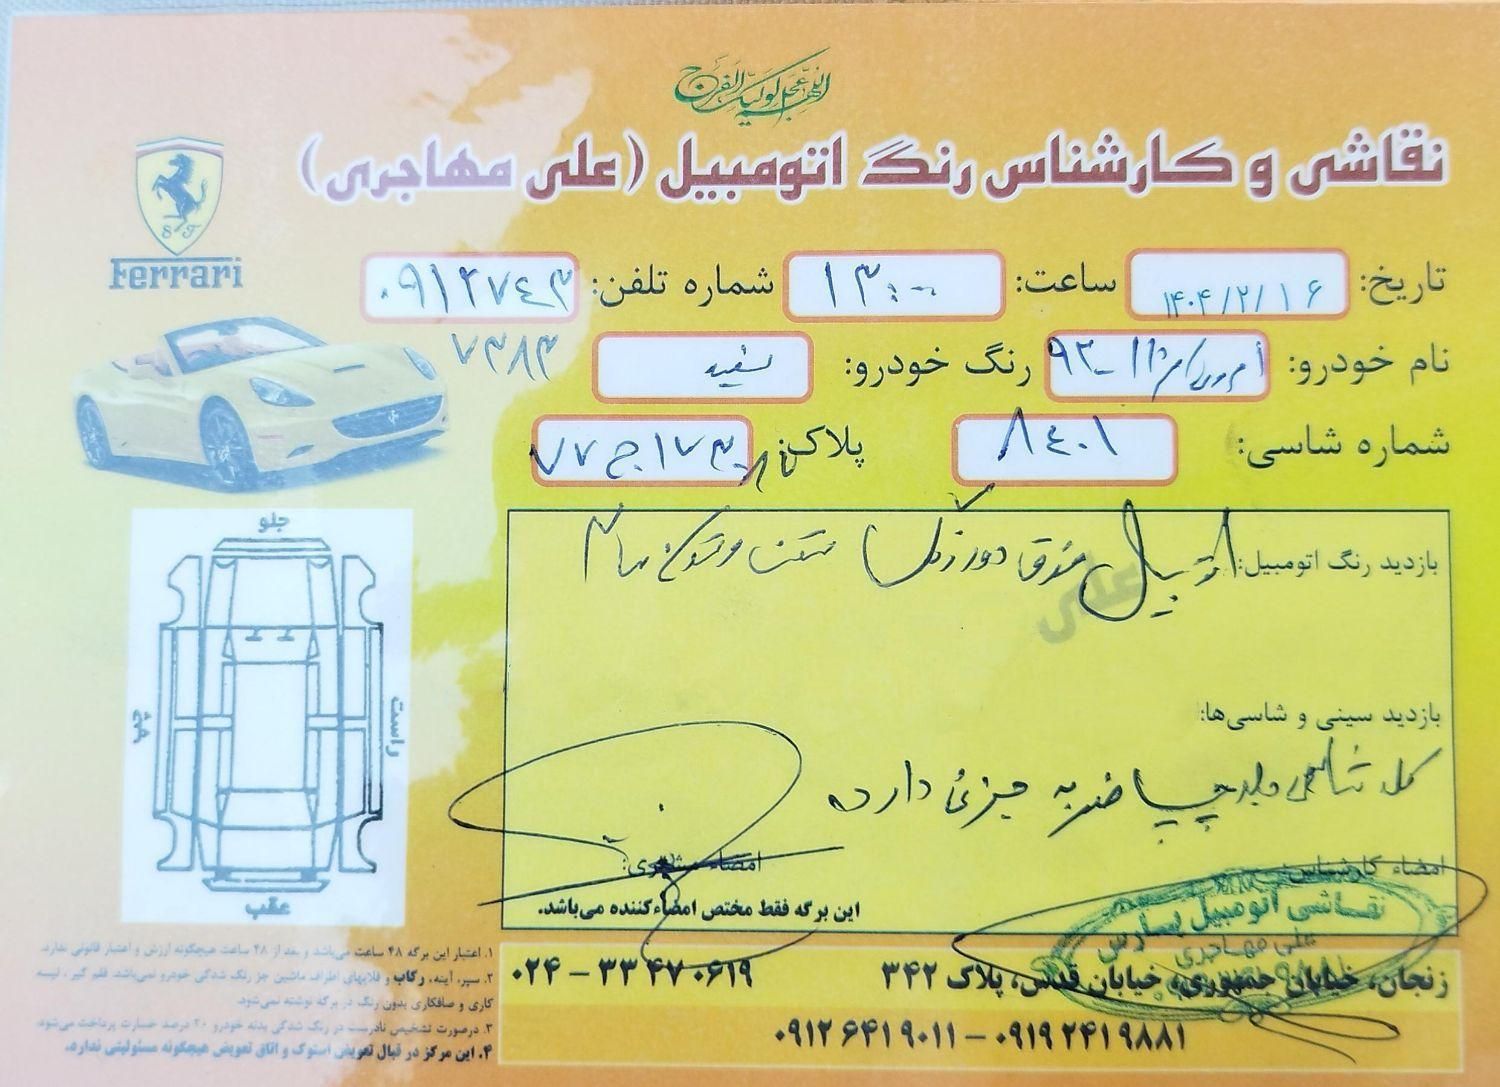 اللهم عجل لولیک الفرج
نقاشی و کارشناس رنگ اتومبیل (علی مهاجری)
S F
Ferrari
تاریخ: ۱۴۰۴/۲/۱۶ ساعت: ۱۳:۰۰ شماره تلفن: ۰۹۱۲۷۴۳
۷۳۸۳
نام خودرو: ۱۱-۹۲ رنگ خودرو: سفید
شماره شاسی: ۸۴۰۱ پلاک:
بازدید رنگ اتومبیل: اتومبیل فوق دور رنگ
علی
بازدید سینی و شاسی‌ها:
کل شاسی جلو چپ ضربه جزئی دارد
امضاء کارشناس: امضاء مشتری:
این برگه فقط مختص امضاءکننده می‌باشد.
نقاشی اتومبیل پارس
علی مهاجری
جلو
راست
چپ
عقب
زنجان، خیابان جمهوری، خیابان قدس، پلاک ۳۴۲ ۰۲۴ – ۳۳ ۴۷ ۰۶۱۹
۰۹۱۲ ۶۴۱ ۹۰۱۱ – ۰۹۱۹ ۲۴۱ ۹۸۸۱
۱. اعتبار این برگه ۴۸ ساعت می‌باشد و بعد از ۴۸ ساعت هیچگونه ارزش و اعتبار قانونی ندارد.
۲. سپر، آینه، رکاب و قلاپهای اطراف ماشین جز رنگ شدگی خودرو نمی‌باشد. قلم گیر، لیسه
کاری و صافکاری بدون رنگ در برگه نوشته نمی‌شود.
۳. درصورت تشخیص نادرست در رنگ شدگی بدنه خودرو ۲۰ درصد خسارت پرداخت می‌شود.
۴. این مرکز در قبال تعویض استوک و اتاق تعویض هیچگونه مسئولیتی ندارد.